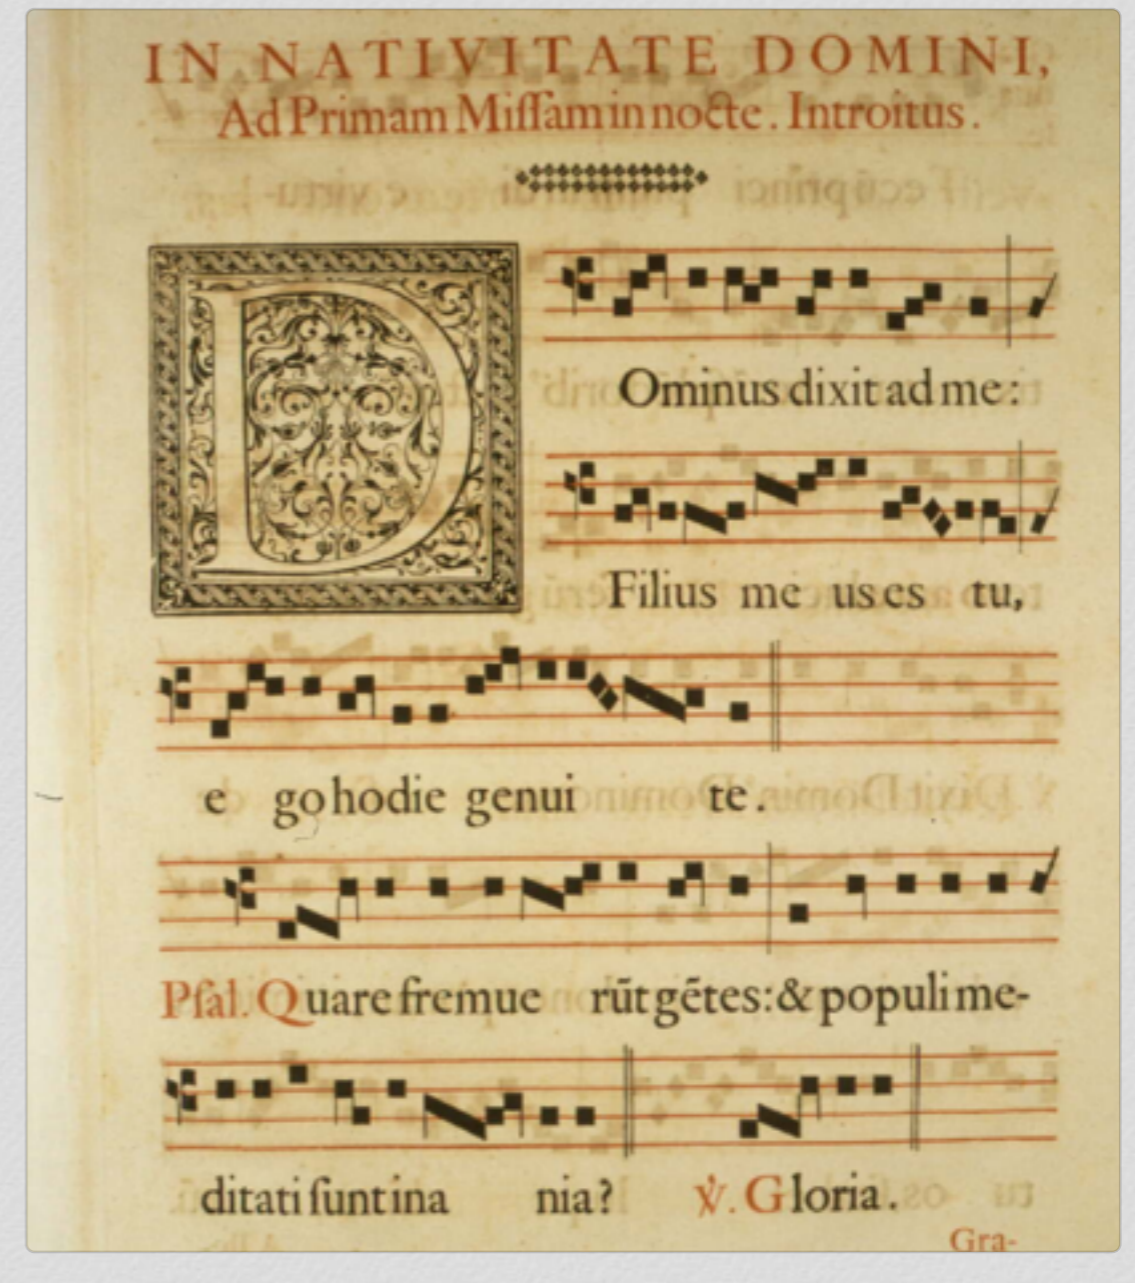 IN NATIVITATE DOMINI,
Ad Primam Miſſam in nocte. Introitus.
DOminus dixit ad me:
Filius me us es tu,
e go hodie genui te.
Pſal. Quare fremue rūt gētes: & populi me-
ditati ſunt ina nia? ℣. Gloria.
Gra-